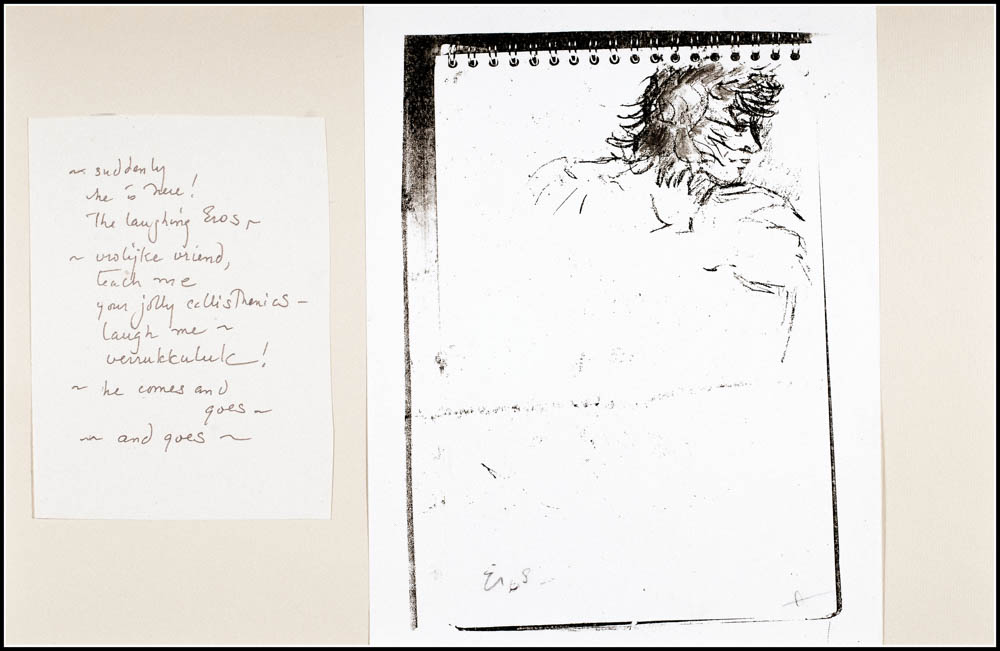 ~ suddenly
he is here!
The laughing Eros ~
~ vrolijke vriend,
teach me
your jolly callisthenics –
laugh me ~
verrukkuluk!
~ he comes and
goes ~
~ and goes ~
Eros –